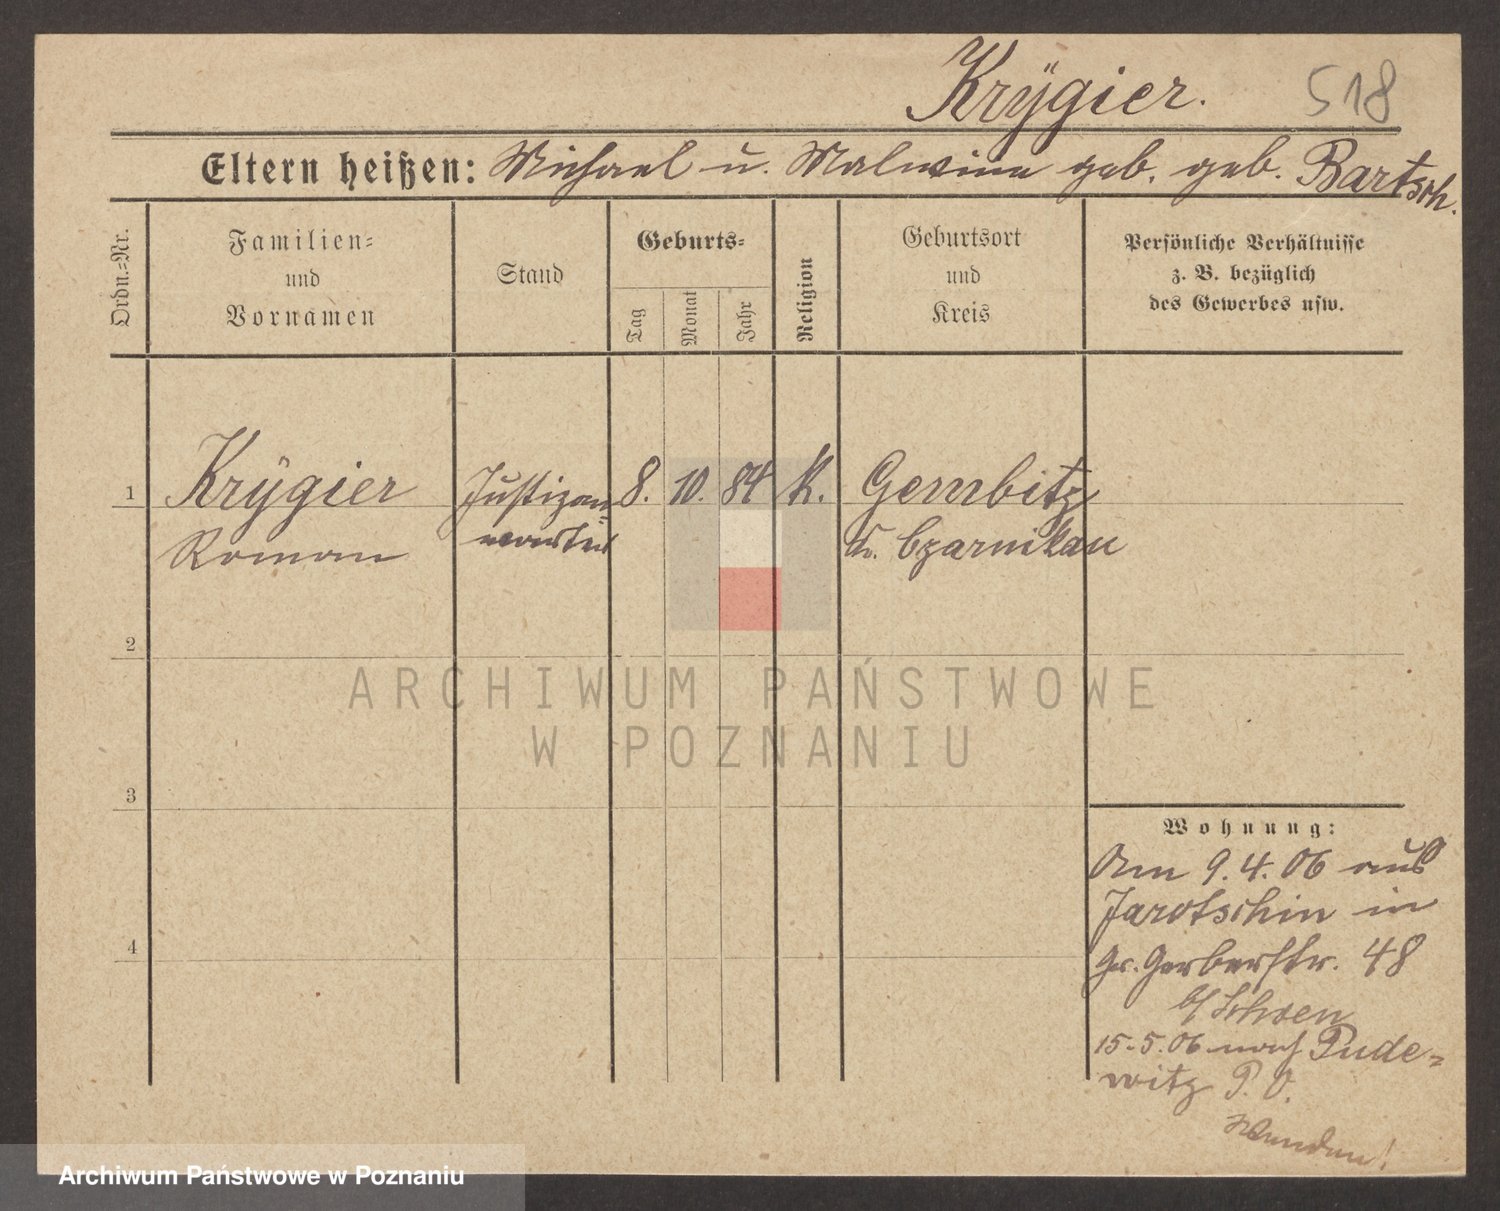 Krÿgier. 518
Eltern heißen: Michael u. Malwine geb. geb. Bartsch.
Ordn.-Nr.
Familien- und Vornamen
Stand
Geburts-
Tag
Monat
Jahr
Religion
Geburtsort und Kreis
Persönliche Verhältnisse
z. B. bezüglich
des Gewerbes usw.
1 Krÿgier Justizan- 8. 10. 84 k. Gembitz
Roman wärter K. Czarnikau
2
ARCHIWUM PAŃSTWOWE
W POZNANIU
3
Wohnung:
Am 9.4.06 aus
Jarotschin in
Gr. Gerberstr. 48
b/ Schoen
15.5.06 nach Pude-
4
witz P. O.
Wenden!
Archiwum Państwowe w Poznaniu